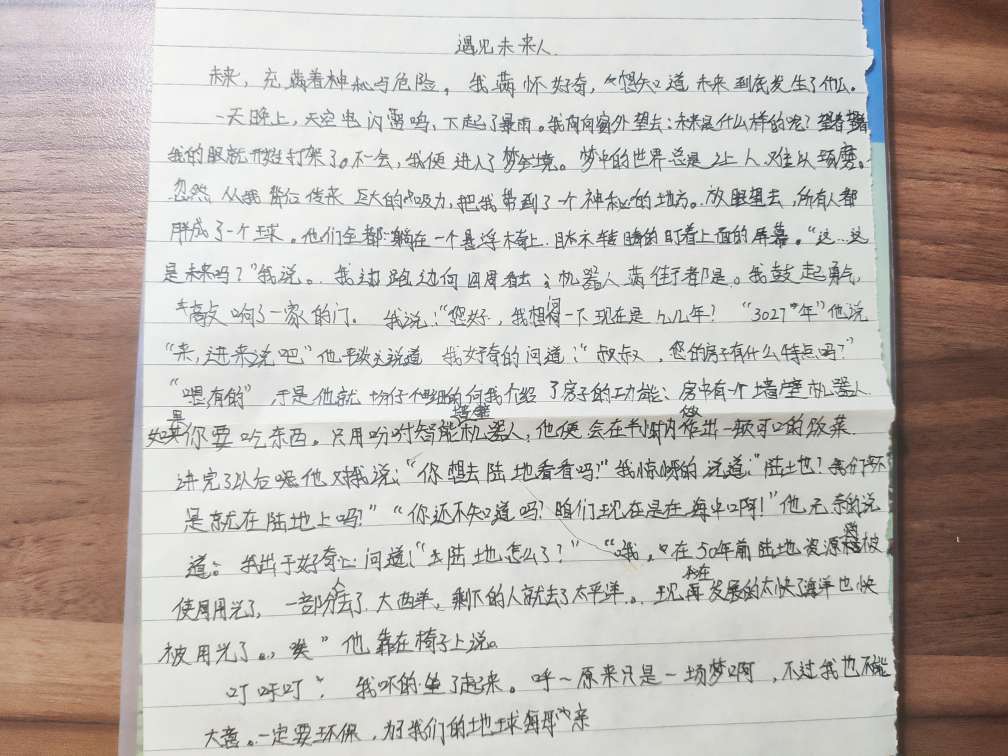 遇见未来人
未来，充满着神秘与危险，我满怀好奇，想知道未来到底发生了什么。
一天晚上，天空电闪雷鸣，下起了暴雨。我向窗外望去：未来是什么样的呢？望着望着
我的眼就开始打架了。不一会，我便进入了梦境。梦中的世界总是让人难以琢磨。
忽然，从我背后传来巨大的吸力，把我带到了一个神秘的地方。放眼望去，所有人都
胖成了一个球。他们全都躺在一个悬浮椅上，目不转睛的盯着上面的屏幕。“这…这
是未来吗？”我说。我边跑边向四周看去；机器人满街都是。我鼓起勇气，
敲响了一家的门。我说：“您好，我想问一下现在是几几年？”“3027年”他说
“来，进来说吧”他说道 我好奇的问道：“叔叔，您的房子有什么特点吗？”
“嗯，有的”于是他就仔细的向我介绍了房子的功能；房中有个墙壁机器人
如果你要吃东西。只用吩咐墙壁机器人，他便会在半小时内做出一顿可口的饭菜
讲完了以后他对我说：“你想去陆地看看吗？”我惊讶的说道：“陆地？我们不
是就在陆地上吗？”“你还不知道吗？咱们现在是在海中啊！”他无奈的说
道。我出于好奇心问道：“去陆地怎么了？”“哦，在50年前陆地资源被
使用用光了，一部分人去了大西洋，剩下的人就去了太平洋。现在发展的太快了海洋也快
被用光了。，唉”他靠在椅子上说。
叮叮叮， 我吓的坐了起来。呼～原来只是一场梦啊，不过我也不能
大意。一定要环保，为我们的地球母亲